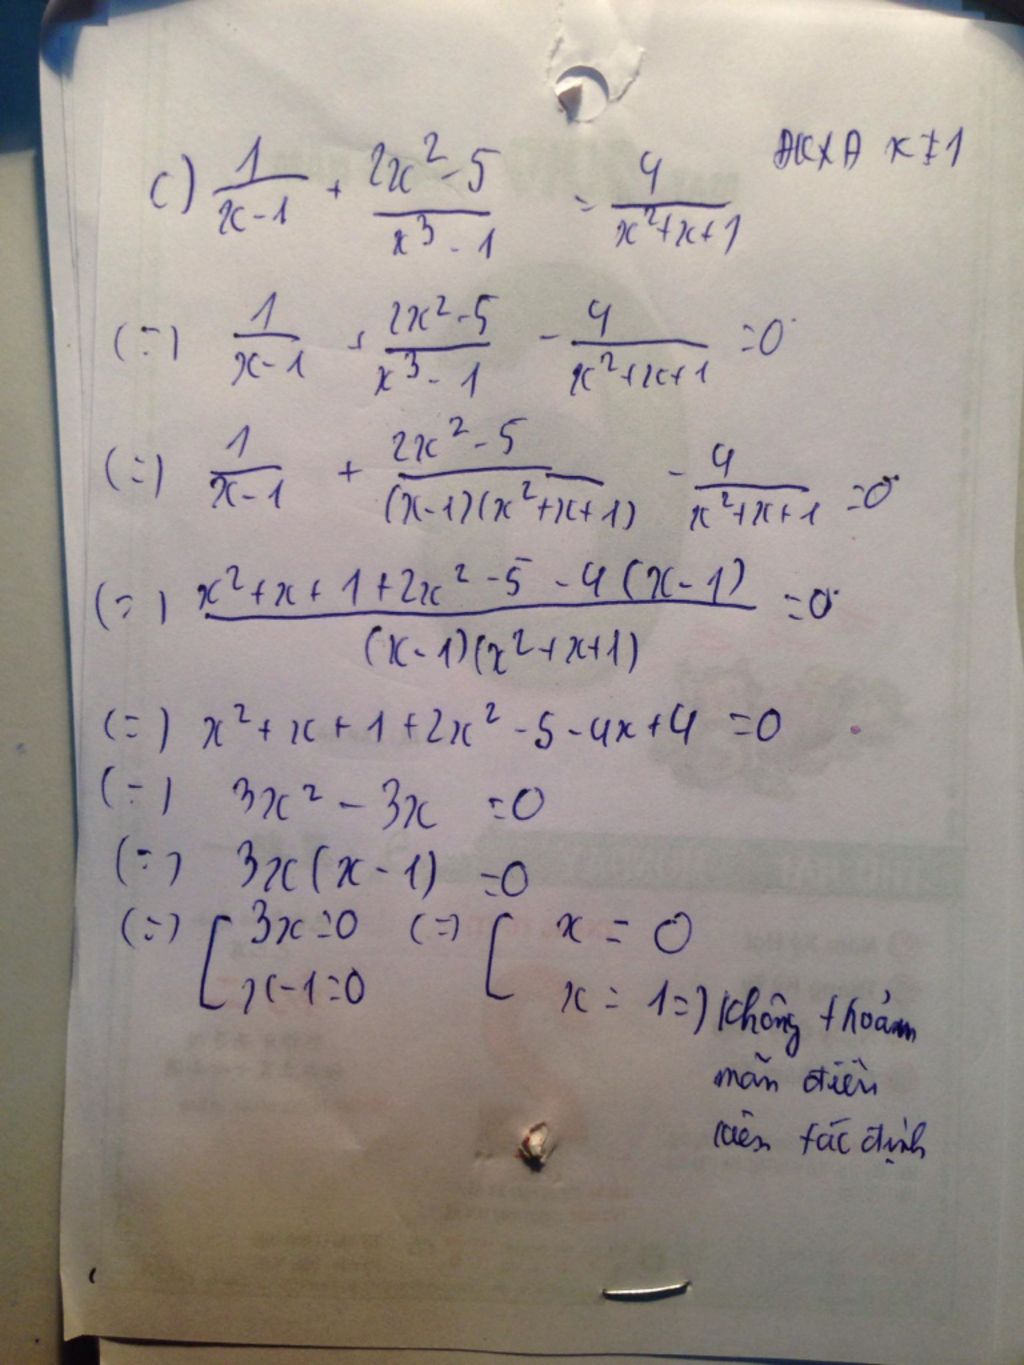 c) 1/(x-1) + (2x²-5)/(x³-1) = 4/(x²+x+1) ĐKXĐ x≠1
(=) 1/(x-1) + (2x²-5)/(x³-1) - 4/(x²+x+1) =0
(=) 1/(x-1) + (2x²-5)/((x-1)(x²+x+1)) - 4/(x²+x+1) =0
(=) (x²+x+1+2x²-5-4(x-1))/((x-1)(x²+x+1)) =0
(=) x²+x+1+2x²-5-4x+4 =0
(=) 3x²-3x =0
(=) 3x(x-1) =0
(=) [ 3x=0 (=) [ x = 0
x-1=0 x = 1 =) không thoảm
mãn điều
kiện tác định